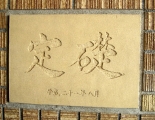 定礎
平成二十一年八月